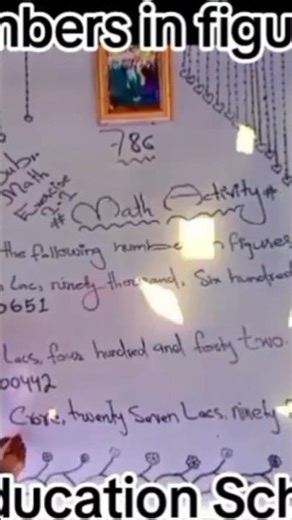 mbers in figu
786
Sub..
Math
Exercise
2.2
# Math Activity #
the following numbe figures
Lac, ninety thousand, Six hundred
0651
Lacs, four hundred and forty two.
00442
Crore, twenty Seven Lacs, ninety
ducation Sch